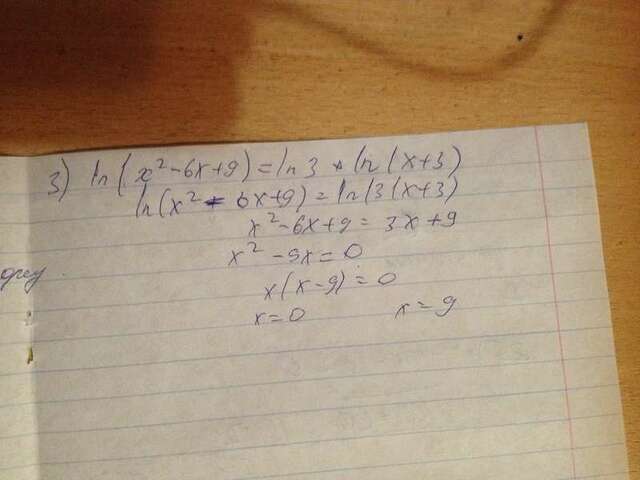 3) ln(x²-6x+9)=ln3+ln(x+3)
ln(x²-6x+9)=ln(3(x+3)
x²-6x+9=3x+9
x²-9x=0
x(x-9)=0
x=0 x=9